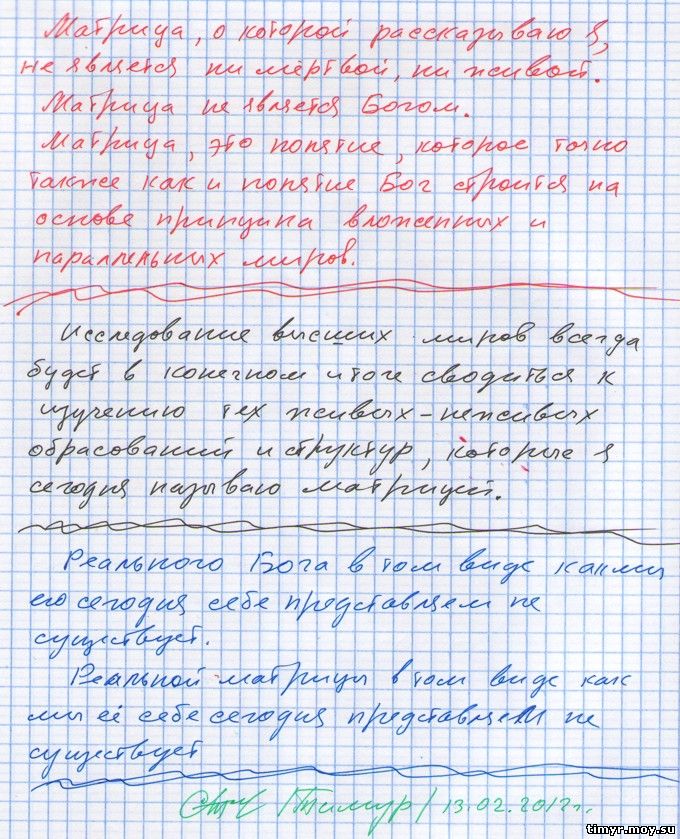 Матрица, о которой рассказываю я,
не является ни мёртвой, ни живой.
Матрица не является Богом.
Матрица, это понятие, которое точно
также как и понятие Бог строится на
основе принципа вложенных и
параллельных миров.
Исследование высших миров всегда
будет в конечном итоге сводиться к
изучению тех живых-неживых
образований и структур, которые я
сегодня называю матрицей.
Реального Бога в том виде как мы
его сегодня себе представляем не
существует.
Реальной матрицы в том виде как
мы её себе сегодня представляем не
существует
/Тимур/ 13.02.2012г.
timyr.moy.su